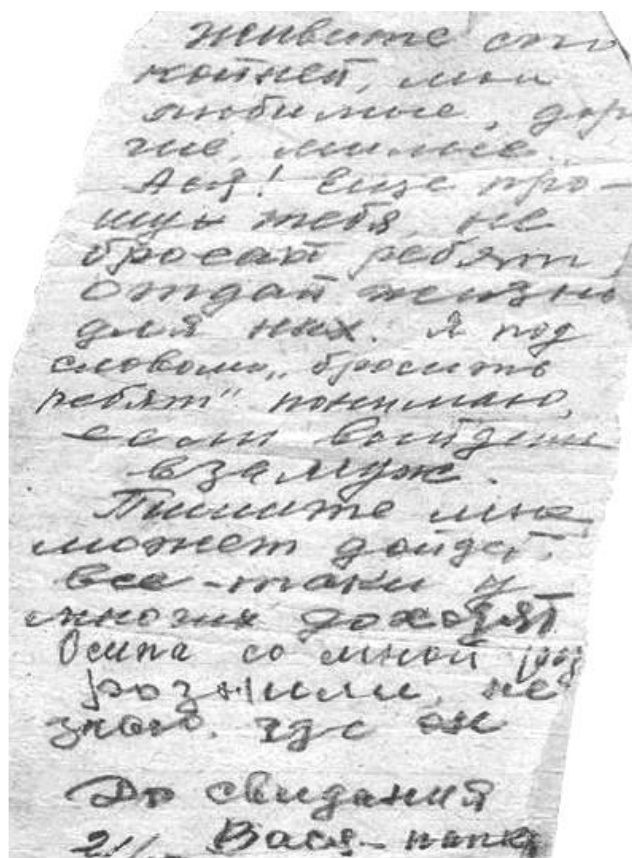 Живите спо
койней, мои
любимые, доро
гие, милые.
Ася! Еще про-
шу тебя, не
бросай ребят,
отдай жизнь
для них. Я под
словом „бросить
ребят" понимаю,
если выйдешь
взамуж.
Пишите мне
может дойдет.
все-таки у
многих доходят
Осипа со мной раз
рознили, не
знаю. где он
До свидания
Вася - папка